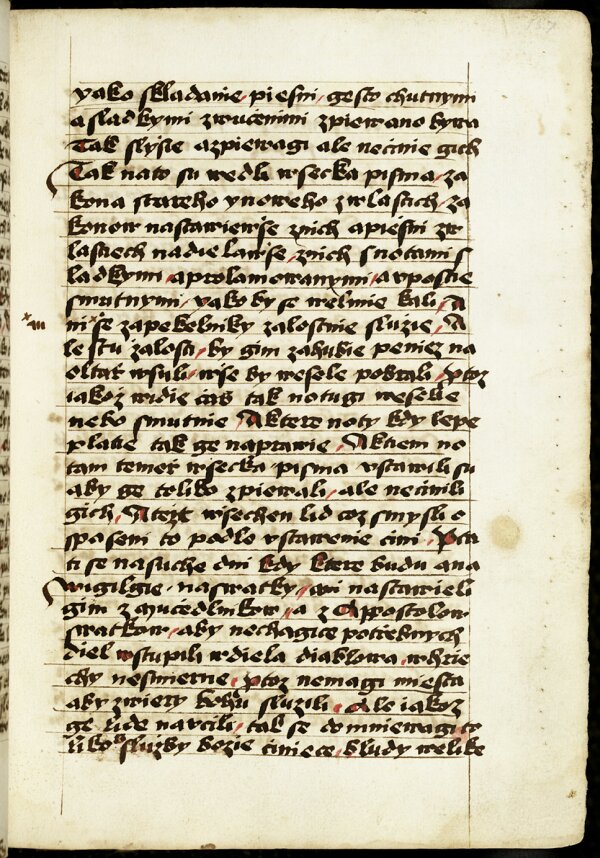 yako skladanie piesni gesto chutnymi
a sladkymi zwucenimi zpiewano bywa
Tak slyssie a zpiewagi ale necinie gich
Tak nato su wedli wsecka pisma za
kona stareho y noweho zwlastich za
konow nastawiewsse znich a piesni zw
lastiech nadielawsse znich s notami s
ladkymi a prolamowanymi a wpostie
smutnymi yako by se welmie kali A
ni se zapekelniky zalostnie sluzie A
le s tu zalosti by gim zahubie peniez na
oltar wsuli wsse by wesele pobrali ptoz
iakoz widie cas tak notugi wesele
nebo smutnie A ktere noty kdy lepe
platie tak ge naprawie A ktiem no
tam temer wsecka pisma vstawili su
aby ge toliko zpiewali ale necinili
gich A tezt wsechen lid coz smysli o
spaseni to podle vstawenie cini
ti se nasuche dni kdy ktere budu ana
wigilgie naswatky ani nastawieli
gim z mucedlnikow a z Appostolow
swatkow aby nechagice potrebnych
diel wstupili wdiela diablowa whrie
chy nesmierne ptoz nemagi miesta
aby zwiery bohu sluzili ale iakoz
ge lide naucili tak se domniewagi to
liko sluzby bozie ciniece bludy welike